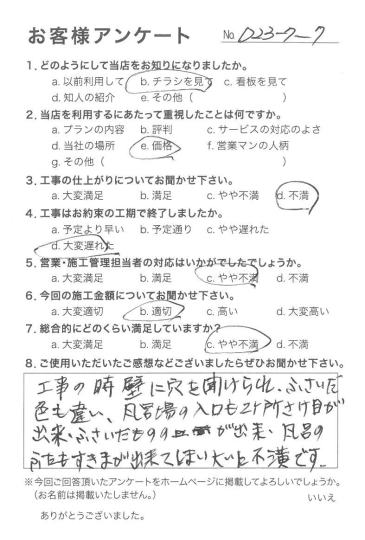 お客様アンケート No. 023-7-7
1. どのようにして当店をお知りになりましたか。
a. 以前利用して b. チラシを見て c. 看板を見て
d. 知人の紹介 e. その他（ ）
2. 当店を利用するにあたって重視したことは何ですか。
a. プランの内容 b. 評判 c. サービスの対応のよさ
d. 当社の場所 e. 価格 f. 営業マンの人柄
g. その他（ ）
3. 工事の仕上がりについてお聞かせ下さい。
a. 大変満足 b. 満足 c. やや不満 d. 不満
4. 工事はお約束の工期で終了しましたか。
a. 予定より早い b. 予定通り c. やや遅れた
d. 大変遅れた
5. 営業・施工管理担当者の対応はいかがでしたでしょうか。
a. 大変満足 b. 満足 c. やや不満 d. 不満
6. 今回の施工金額についてお聞かせ下さい。
a. 大変適切 b. 適切 c. 高い d. 大変高い
7. 総合的にどのくらい満足していますか?
a. 大変満足 b. 満足 c. やや不満 d. 不満
8. ご使用いただいたご感想などございましたらぜひお聞かせ下さい。
工事の時壁に穴を開けられ、ふさいだ
色も違い、風呂場の入口も2ヶ所さけ目が
出来、ふさいだものの が出来、風呂の
ふたもすきまが出来てしまい大いに不満です。
※今回ご回答頂いたアンケートをホームページに掲載してよろしいでしょうか。
（お名前は掲載いたしません。） いいえ
ありがとうございました。